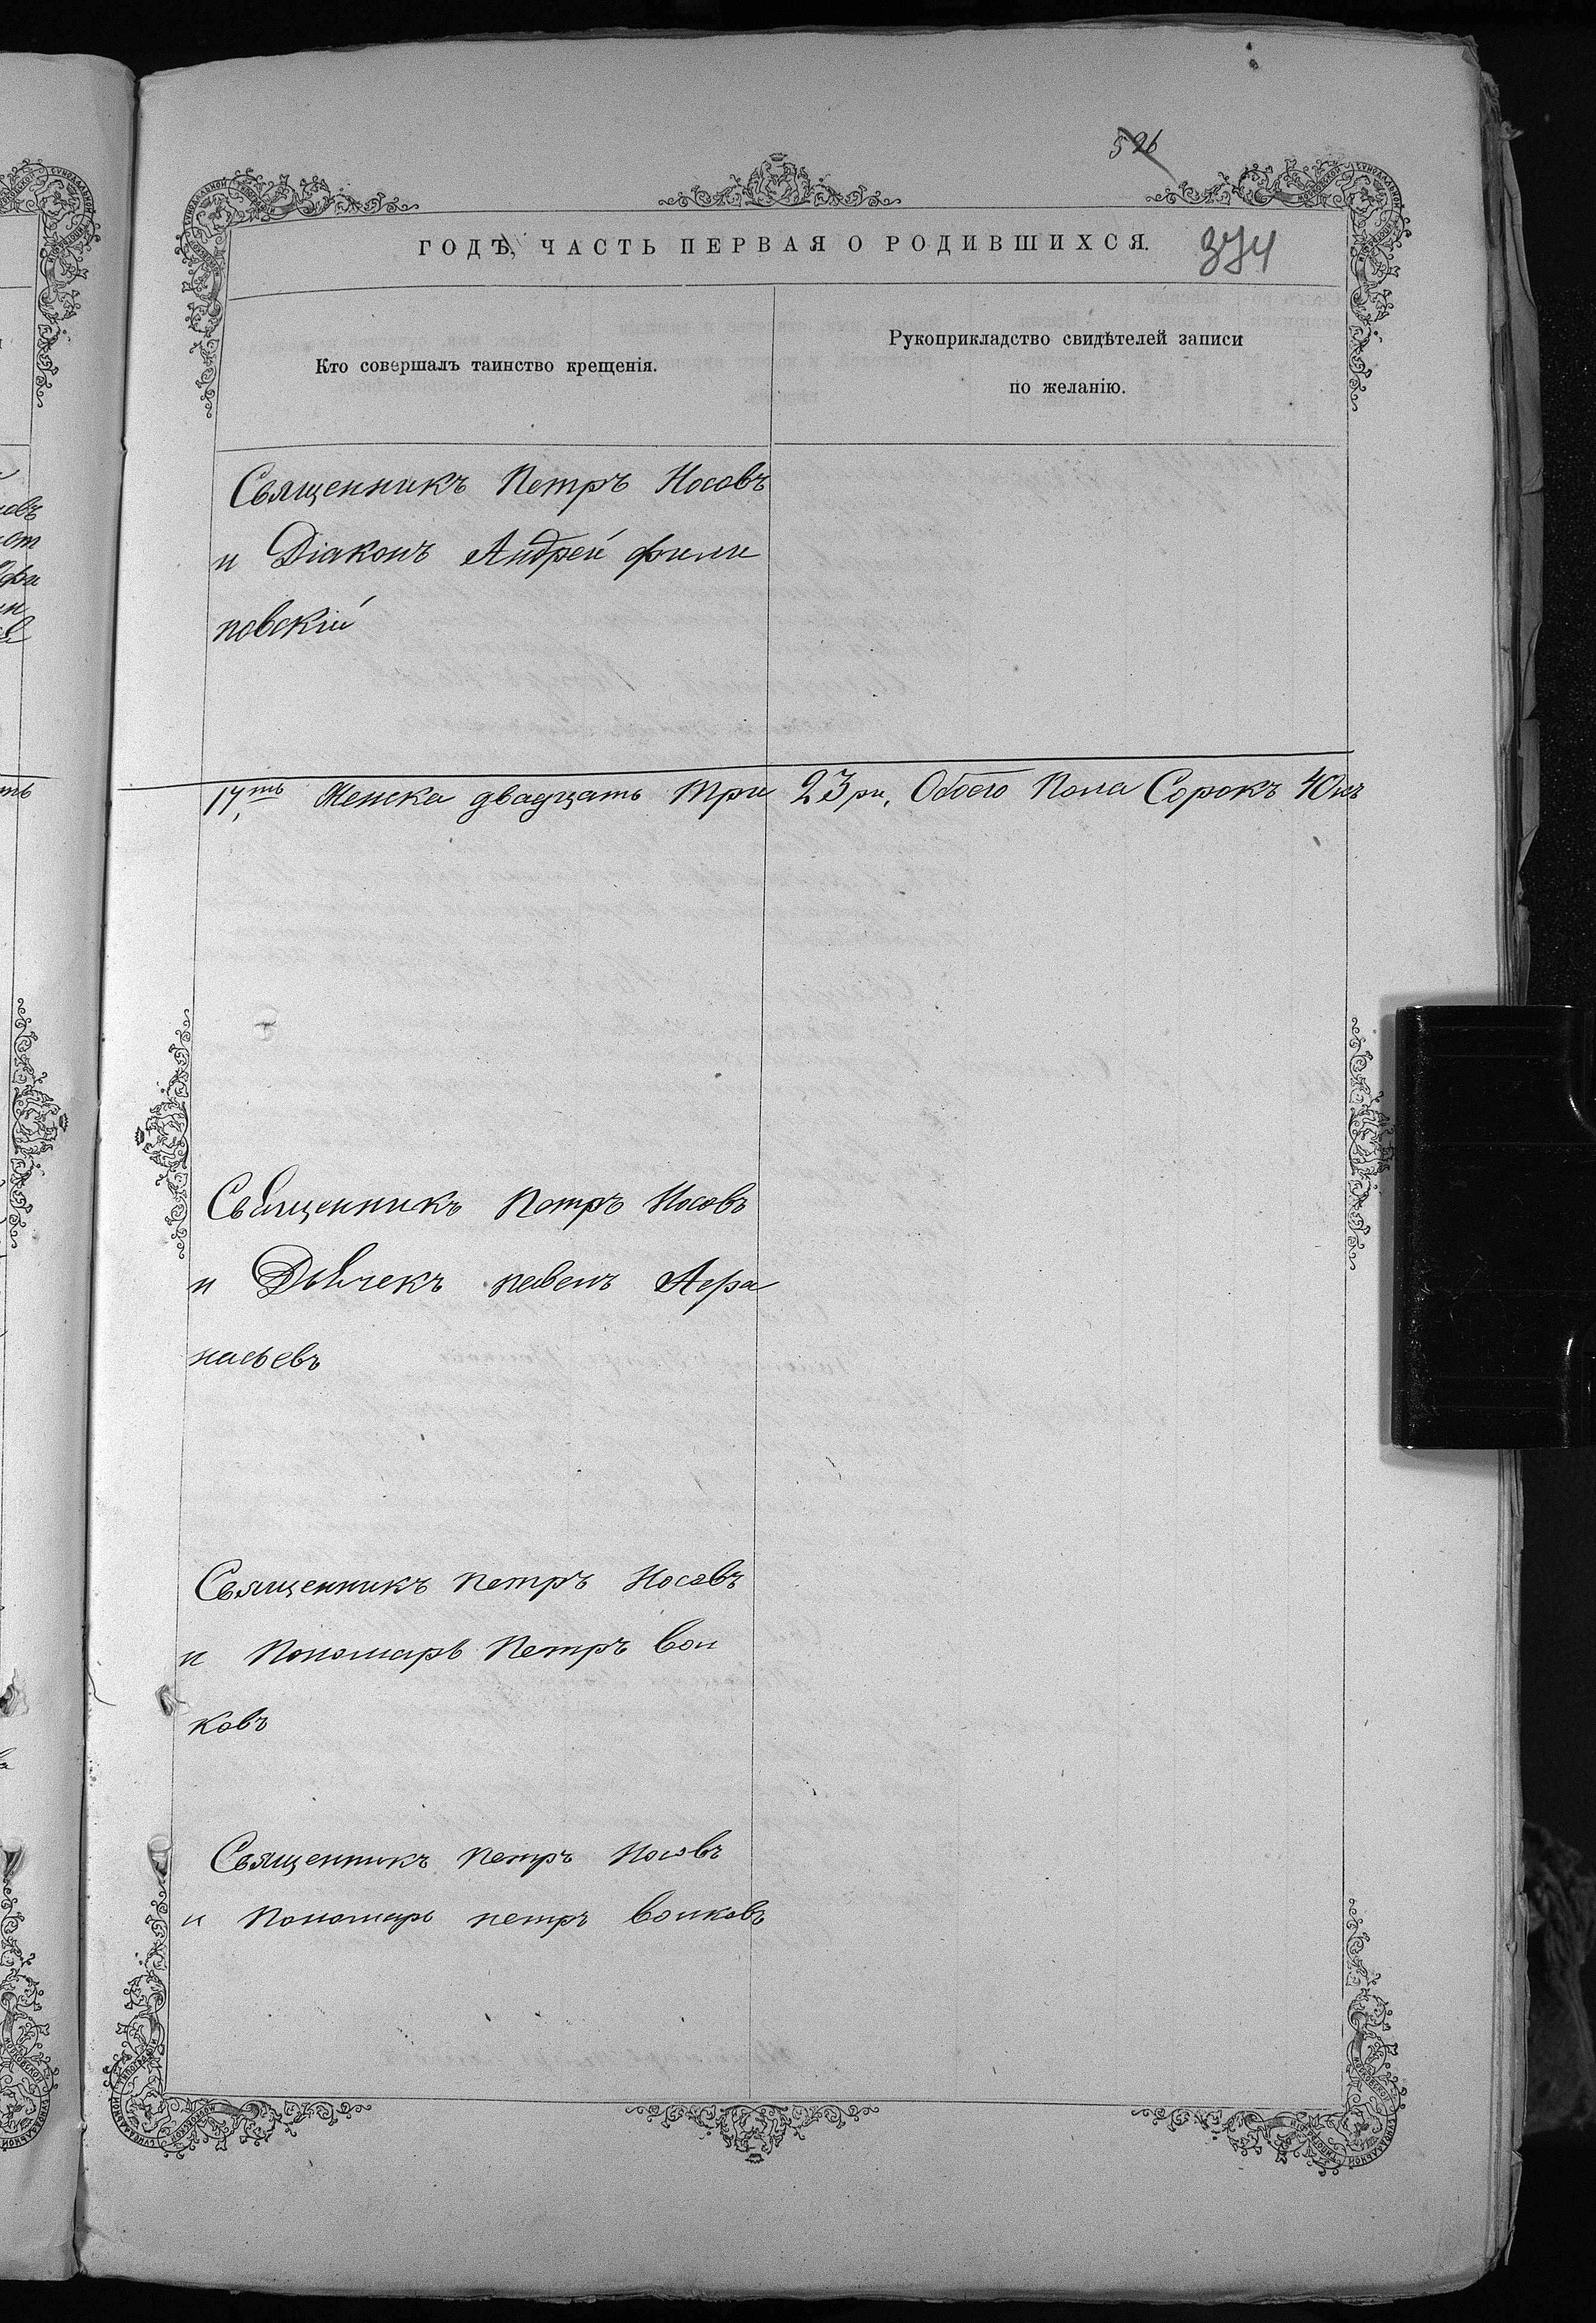 526
ГОДѢ, ЧАСТЬ ПЕРВАЯ О РОДИВШИХСЯ.
374
Кто совершалъ таинство крещенія.
Рукоприкладство свидѣтелей записи
по желанію.
Священникъ Петръ Носовъ
и Діаконъ Андрей фили
повскій
17,ть Женска двадцать три 23ри, Обоего Пола Сорокъ 40къ
Священникъ Петръ Носовъ
и Дьячекъ павелъ Афа
насьевъ
Священникъ петръ Носовъ
и Пономарь Петръ вол
ковъ
Священникъ петръ Носовъ
и Пономарь петръ волковъ